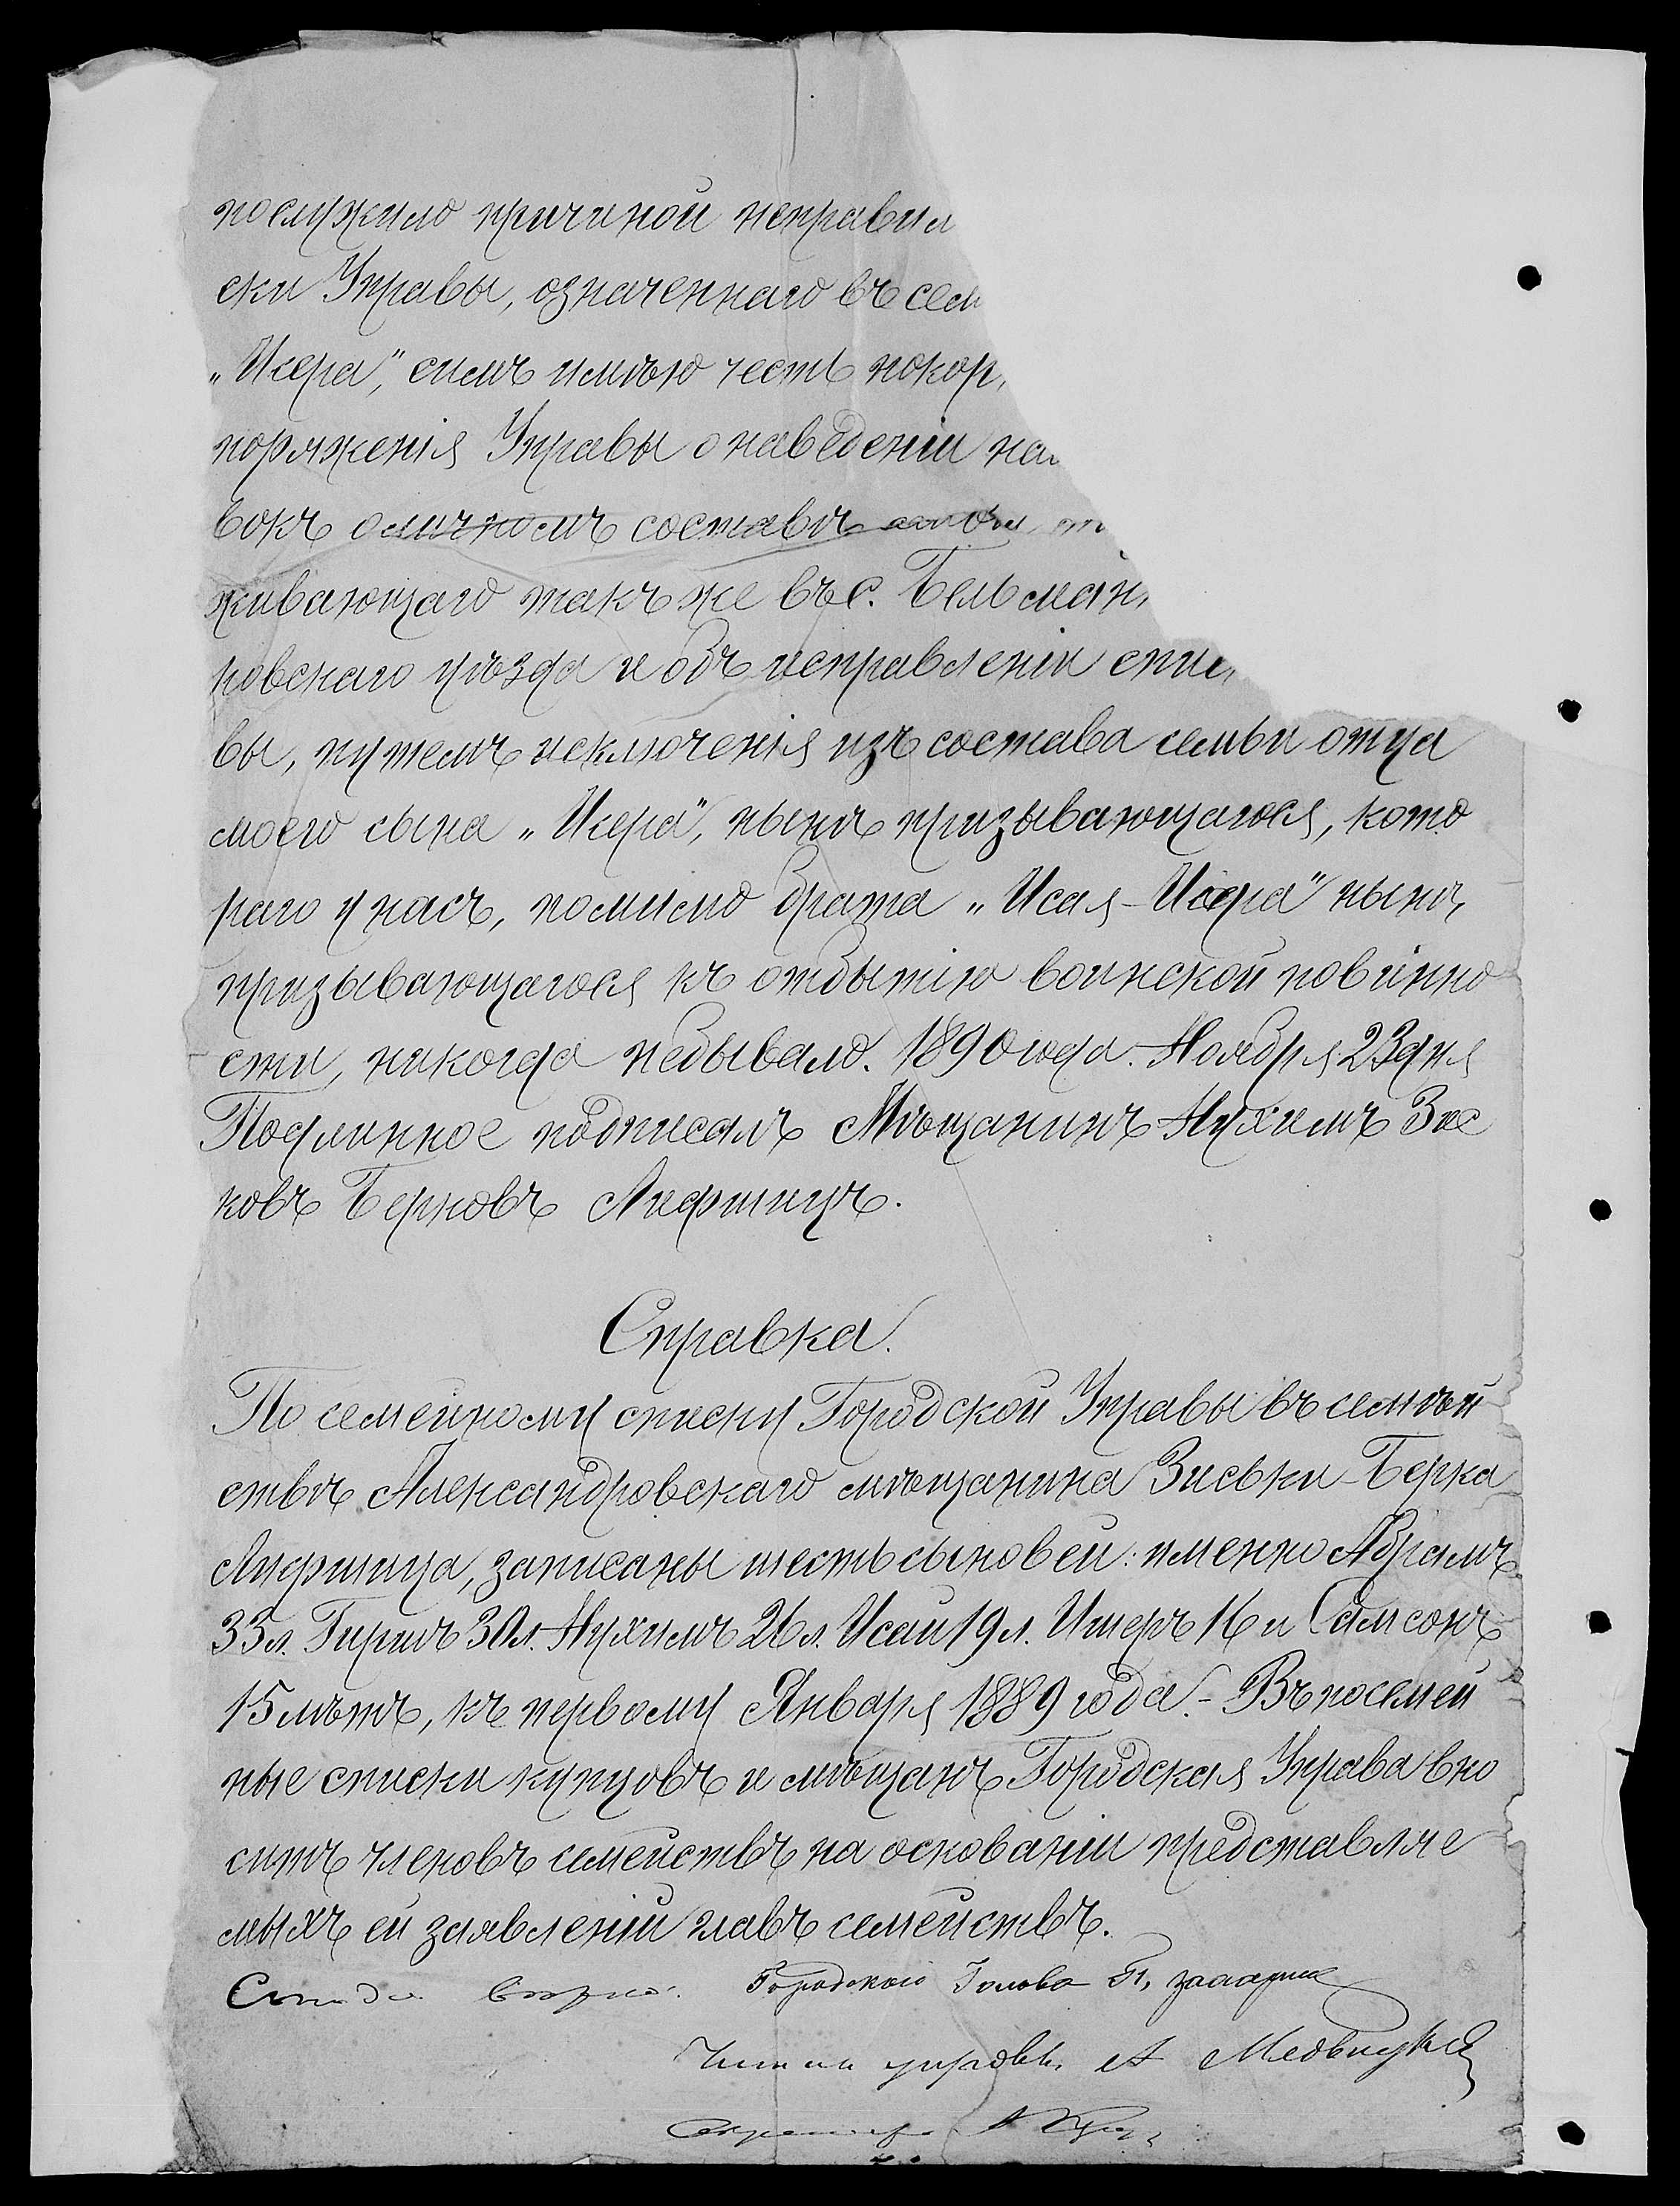 послужило причиной неправил
ски Управы, означеннаго въ сем
„Исера", симъ имѣю честь покор
поряженія Управы о наведеніи
вокъ о личномъ составѣ
живающаго такъ же въ с. Бельман
ровскаго уѣзда и объ исправленіи спис
вы, путемъ исключенія изъ состава семьи отца
моего сына „Исера", нынѣ призывающагося, кото
раго у насъ, помимо брата „Исая-Исера" нынѣ,
призывающагося къ отбытію воинской повинно
сти, никогда небывало. 1890 года. Ноября 23 дня
Подлинное подписалъ Мѣщанинъ Нухимъ Зис
ковъ Берковъ Лифшицъ.
Справка.
По семейному списку Городской Управы въ семѣй
ствѣ Александровскаго мѣщанина Зиськи-Берка
Лифшица, записаны шесть сыновей: именно Абрамъ
33 л. Гиршъ 30 л. Нухимъ 26 л. Исай 19 л. Ишеръ 16 и Самсонъ
15 лѣтъ, къ первому Января 1889 года. - Въ посемей
ные списки купцовъ и мѣщанъ Городская Управа вно
ситъ членовъ семействъ на основаніи представляе
мыхъ ей заявленій главъ семействъ.
вѣрно: Городской Голова
управы А Медвѣд
Секретарь